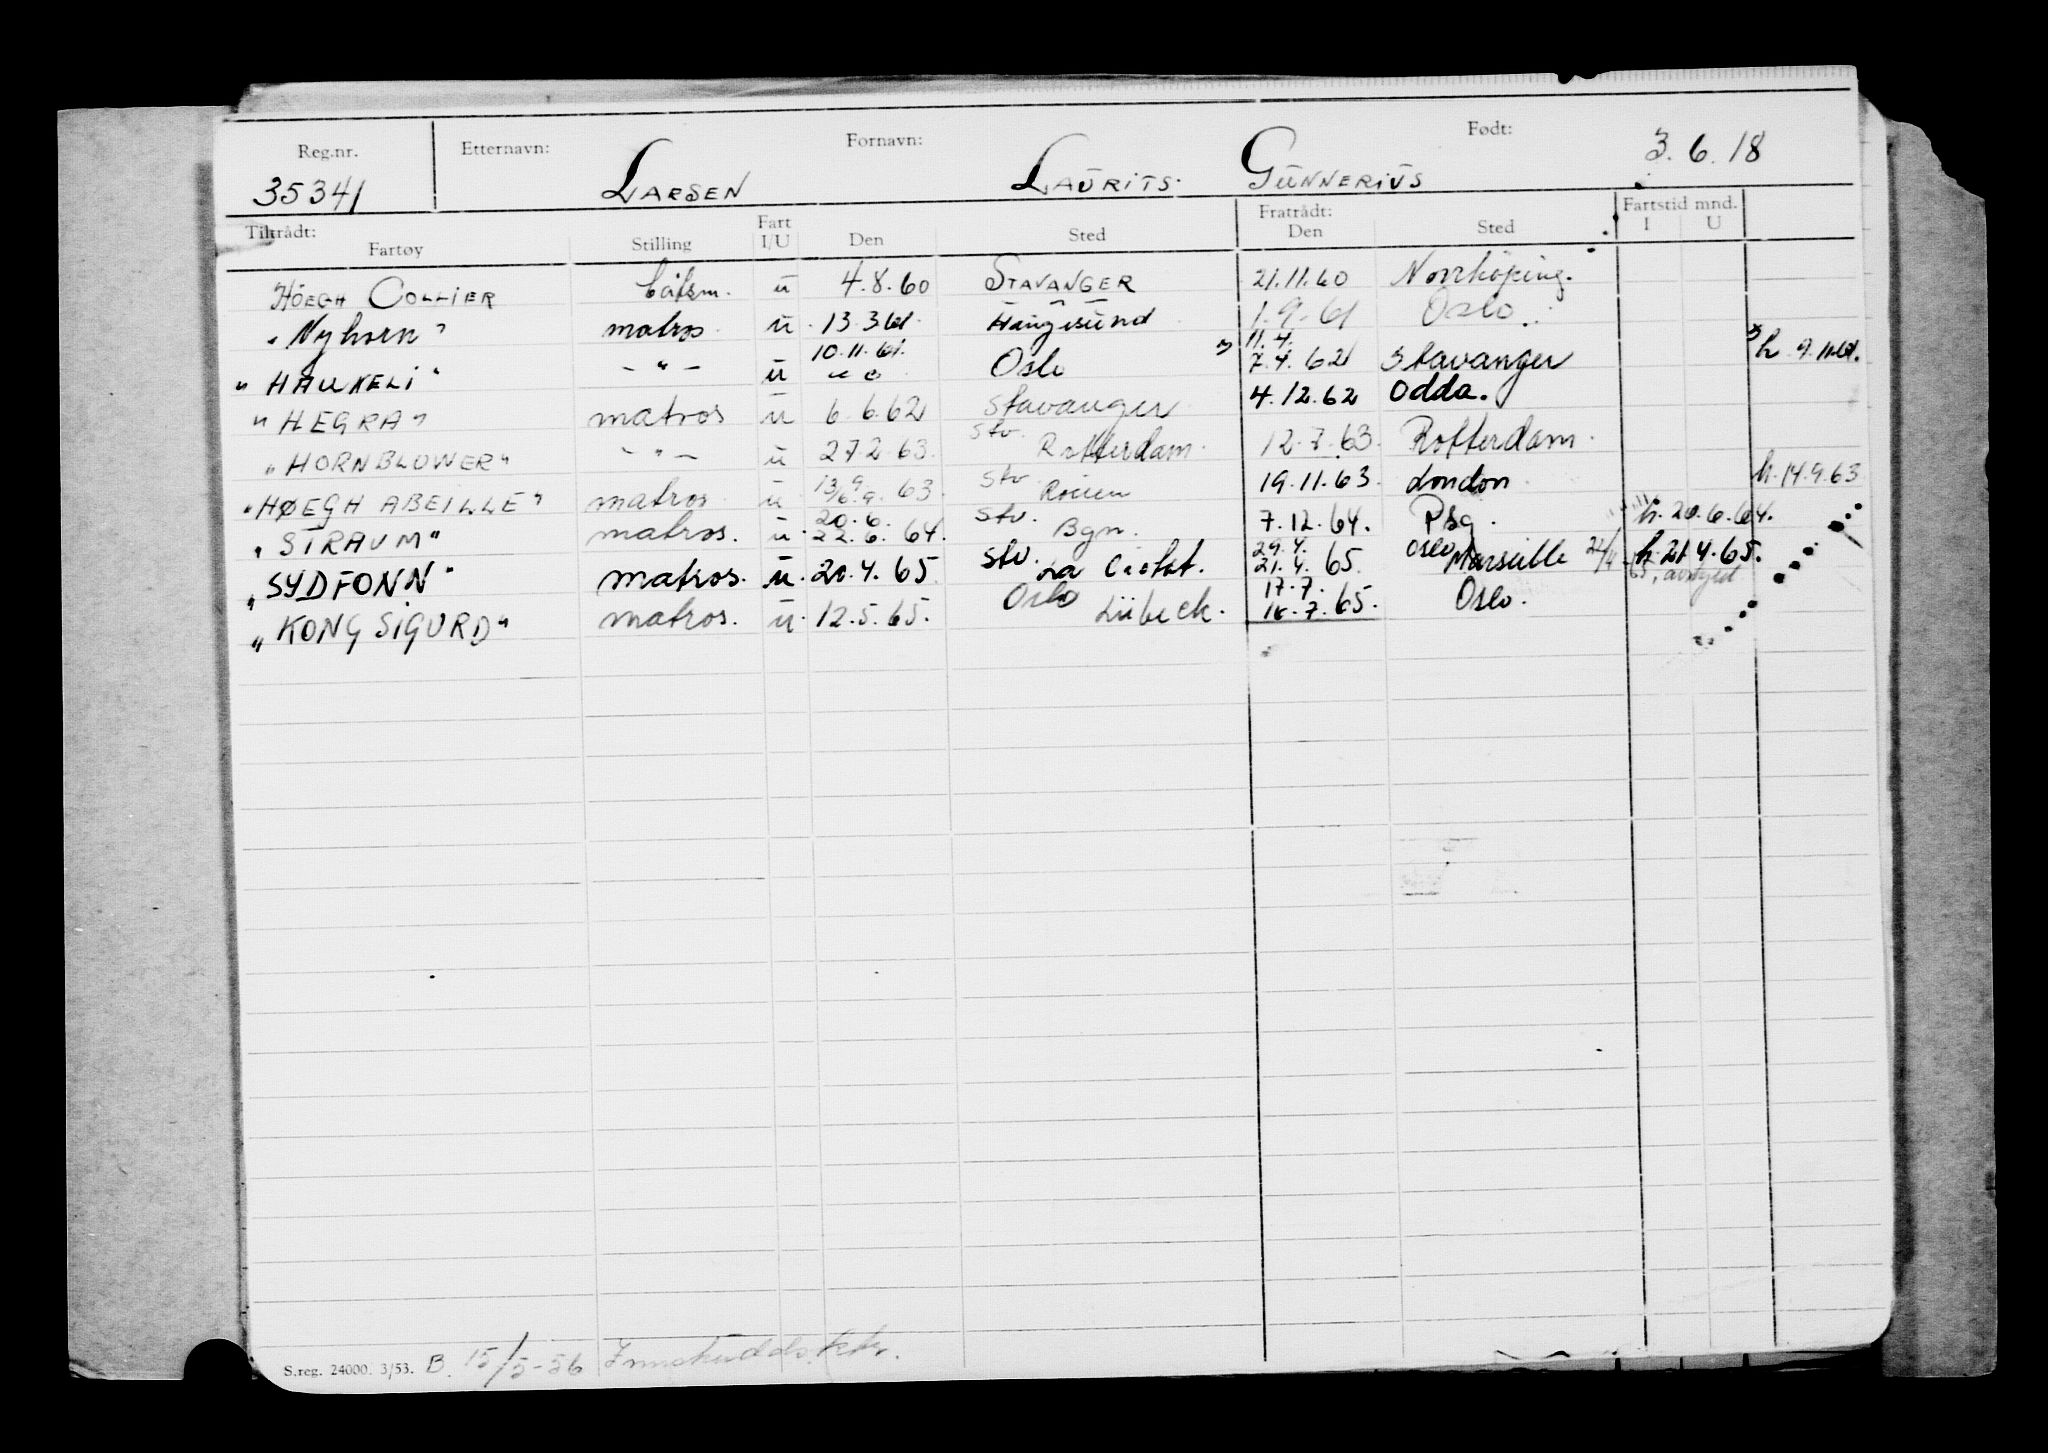 Reg.nr. Etternavn: Fornavn: Født:
35341 LARSEN LAURITS GUNNERIUS 3.6.18
Tiltrådt: Fart Fratrådt: Fartstid mnd.
Fartøy Stilling I/U Den Sted Den Sted I U
HÖEGH COLLIER båtsm. u 4.8.60 STAVANGER 21.11.60 Norrköping.
"Nyhorn" matros u 13.3.61 Haugesund 1.9.61 Oslo
10.11.61. 11.4.
"HAUKELI" - " - u Oslo 7.4.62 Stavanger h. 9.11.61.
"HEGRA" matros u 6.6.62 Stavanger 4.12.62 Odda.
"HORNBLOWER" - " - u 27.2.63. Stv. Rotterdam. 12.7.63. Rotterdam.
"HØEGH ABEILLE" matros u 63. Stv. Rouen 19.11.63. London h. 14.9.63
20.6.
"STRAUM" matros. u. 22.6.64. Stv. Bgn. 7.12.64. Psg. h. 20.6.64.
29.4. Oslo
"SYDFONN" matros. u. 20.4.65 Stv. La Ciotat. 21.4.65. Marseille h. 21.4.65.
17.7.
"KONG SIGURD" matros. u. 12.5.65. Oslo Lübeck. 16.7.65. Oslo.
S.reg. 24000. 3/53. B. 15/5-56